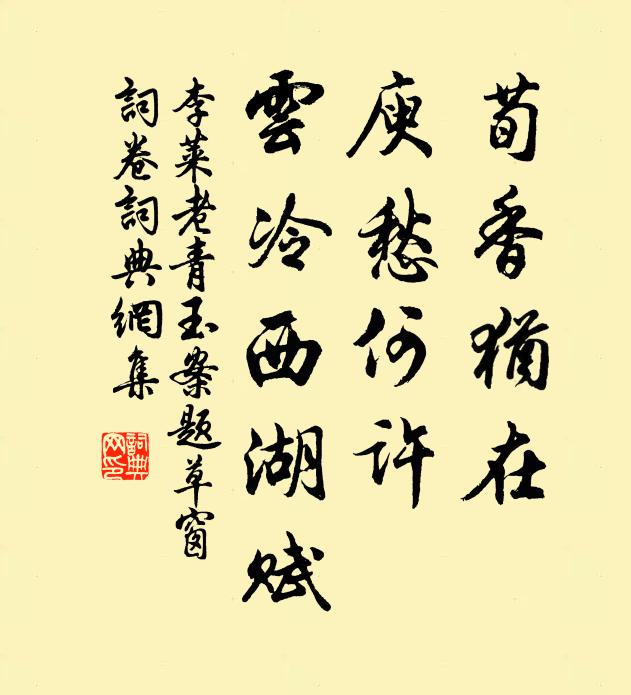 荀香猶在
庾愁何許
雲冷西湖賦
李萊老青玉案題草窗
詞卷詞典網集
詞典网印